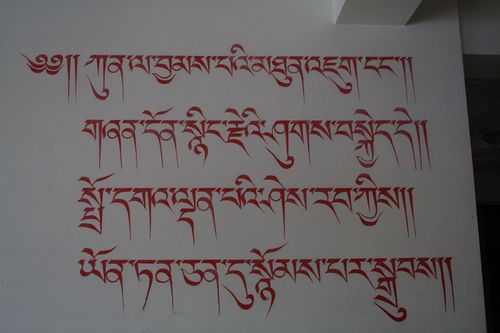 ༄༅།། ཀུན་ལ་བྱམས་པའི་མཐུན་འཇུག་དང་།།
གཞན་དོན་སྙིང་རྗེའི་ཤུགས་བསྐྱེད་དེ།།
སྤྲོ་དགའ་ལྡན་པའི་ཤེས་རབ་ཀྱིས།།
ཡོན་ཏན་ཅན་དུ་སྙོམས་པར་སྒྲུབས།།